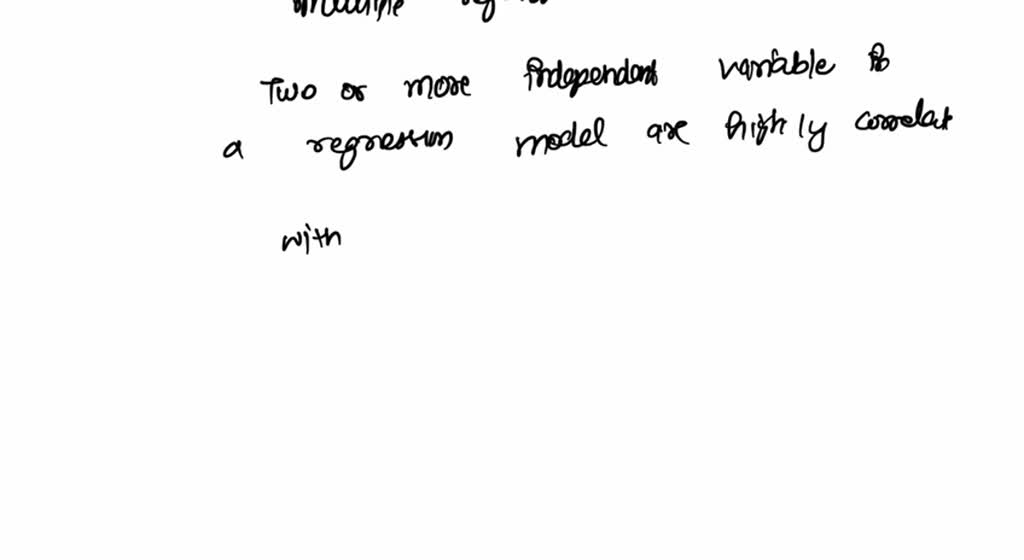 multiple
Two or more independent variable in
a regression model are highly correlat
with